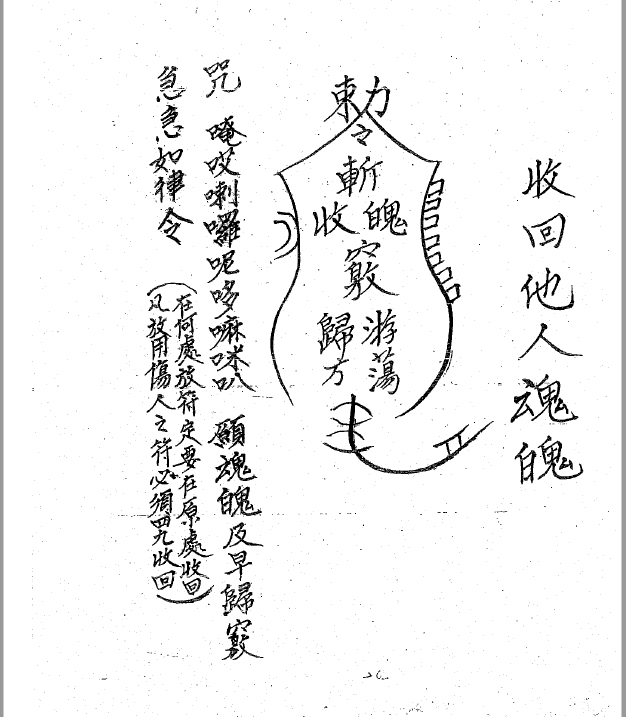 收回他人魂魄
勅令
斬魄
收
竅
游蕩
歸方
咒 唵哎喇囉呢哆嘛咪叭 願魂魄及早歸竅
急急如律令
(在何處放符定要在原處收回
凡放用傷人之符必須四九收回)